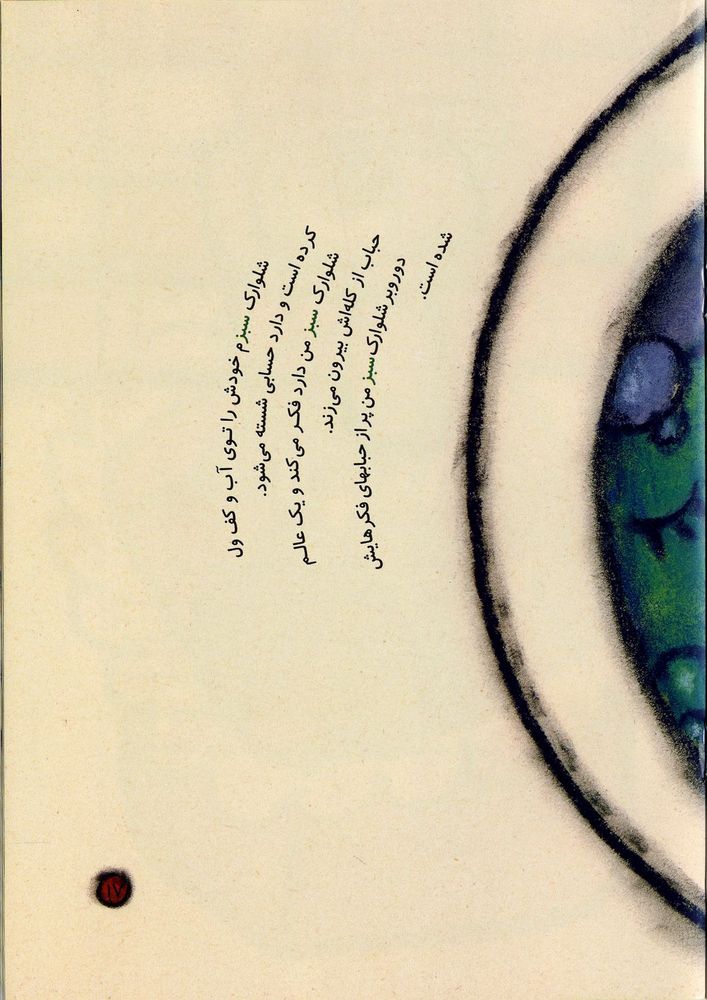 شلوارک سبزم خودش را توی آب و کف ول
کرده است و دارد حسابی شسته می‌شود.
شلوارک سبز من دارد فکر می‌کند و یک عالم
حباب از کله‌اش بیرون می‌زند.
دوروبر شلوارک سبز من پر از حبابهای فکرهایش
شده است.
۱۷